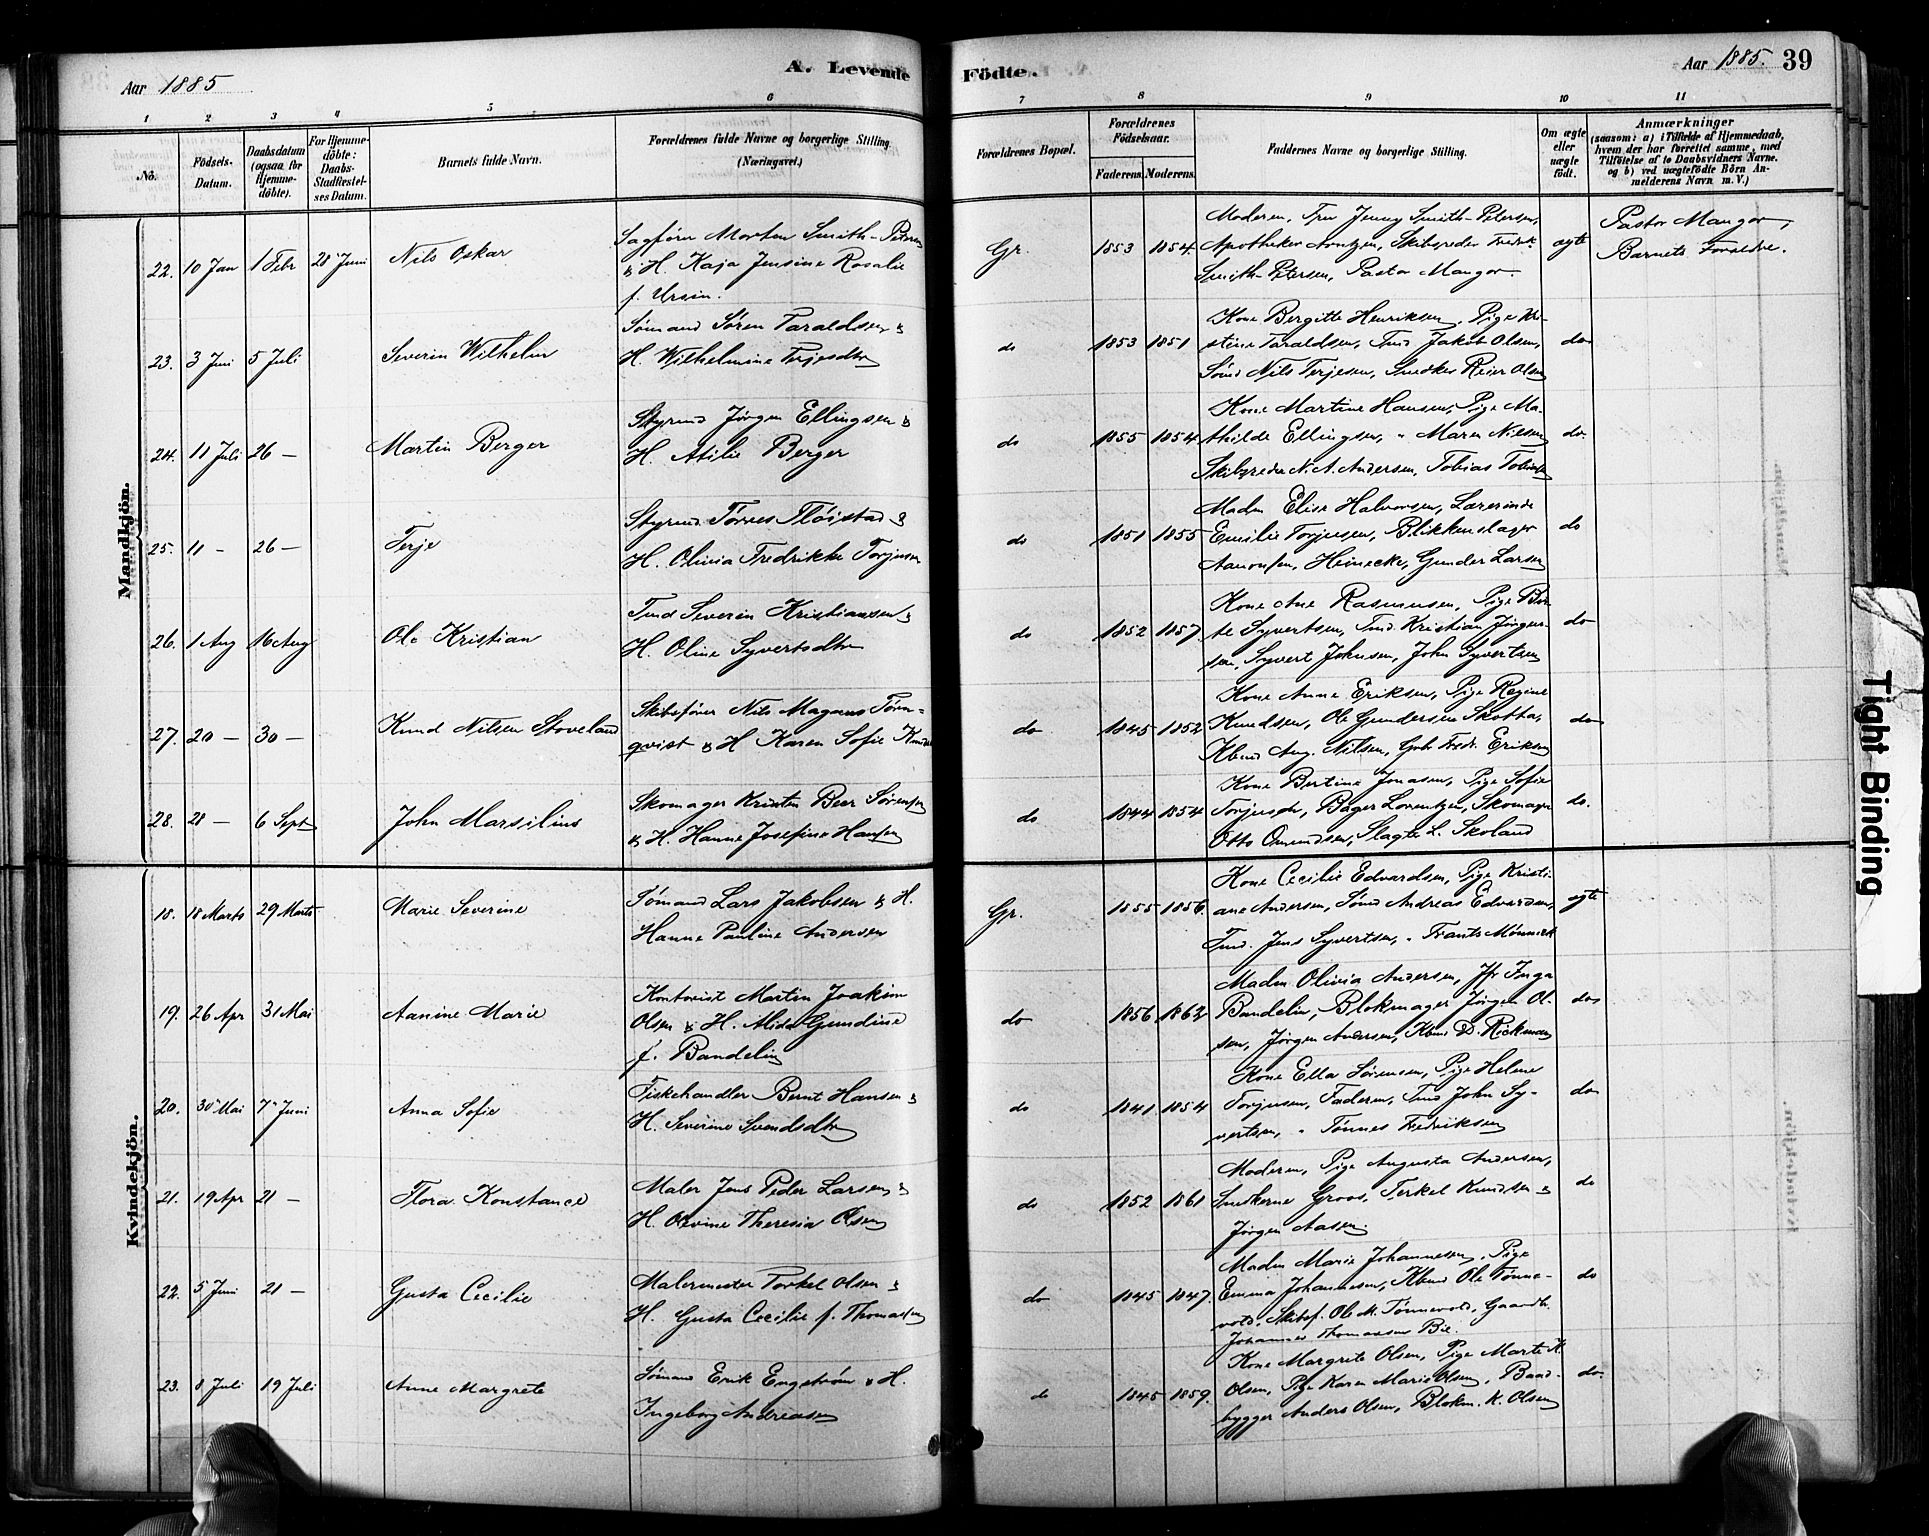 Aar 1885
A. Levende
Födte.
Aar 1885. 39
1 2 3 4 5 6 7 8 9 10 11
No.
Födsels-Datum.
Daabsdatum (ogsaa for Hjemme-döbte).
For Hjemme-döbte: Daabs-Stadfæstel-ses Datum.
Barnets fulde Navn.
Forældrenes fulde Navne og borgerlige Stilling. (Næringsvei.)
Forældrenes Bopæl.
Forældrenes Födselsaar.
Faderens. Moderens.
Faddernes Navne og borgerlige Stilling.
Om ægte eller uægte födt.
Anmærkninger
(saasom: a) i Tilfælde af Hjemmedaab, hvem der har forrettet samme, med Tilföielse af to Daabsvidners Navne. og b) ved uægtefödte Börn An-melderens Navn m. V.)
Mandkjön.
22. 10 Jan 1 Febr 28 Juni Nils Oskar
Sagfører Morten Smith-Petersen
& H. Kaja Jensine Rosalie
f. Ursin.
Gr. 1853 1854
Moderen, Fru Jenny Smith-Petersen,
Apotheker Arntzen, Skibsreder Fredrik
Smith-Petersen, Pastor Mangor
ægte
Pastor Mangor,
Barnets Forældre.
23. 3 Juni 5 Juli Severin Wilhelm
Sømand Søren Taraldsen &
H. Wilhelmine Terjesdtr
do 1853 1851
Kone Bergitte Henriksen, Pige Kri-
stine Taraldsen, Tmd Jakob Olsen,
Sømd Nils Terjesen, Snedker Reier Olsen
do
24. 11 Juli 26 — Martin Berger
Styrmd Jørgen Ellingsen &
H. Atilie Berger
do 1855 1854
Kone Martine Hansen, Pige Ma-
thilde Ellingsen, " Maren Nilsen
Skibsreder N. A. Andersen, Tobias Tobiasen
do.
25. 11 - 26 — Terje
Styrmd Tørres Fløistad &
H. Olivia Fredrikke Torjusen
do 1851 1855
Madm Elise Halvorsen, Lærerinde
Emilie Torjussen, Blikkenslager
Aanonsen, Heinecke, Gunder Larsen
do
26. 1 Aug 16 Aug Ole Kristian
Tmd Severin Kristiansen &
H. Oline Syvertsdtr
do 1852 1857
Kone Ane Rasmussen, Pige Ber-
te Syvertsen, Tmd. Kristian Jørgen-
sen, Syvert Johnsen, John Syvertsen
do
27. 20 — 30 — Knud Nilsen Stoveland
Skibsfører Nils Magnus Törn-
qvist & H Karen Sofie Knuds
do 1845 1852
Kone Anne Eriksen, Pige Regine
Knudsen, Ole Gundersen Skotta,
Kbmd Aug. Nilsen, Fredr. Eriksen
do
28. 28 — 6 Sept John Marsilius
Skomager Kristen Beer Sørensen
& H. Hanne Josefine Hansen
do 1844 1854
Kone Bertine Jonasen, Pige Sofie
Torjusdr, Bager Lorentzen, Skomager
Otto Omundsen, Slagter L. Skoland
do.
Kvindekjön.
18. 18 Marts 29 Marts Marie Severine
Sømand Lars Jakobsen & H.
Hanne Pauline Andersen
Gr. 1855 1856.
Kone Cecilie Edvardsen, Pige Kristi
ane Andersen, Sømd Andreas Edvardsen,
Tmd. Jens Syvertsen, " Frants Mönnick
ægte
19. 26 Apr 31 Mai Aanine Marie
Kontorist Martin Joakim
Olsen & H. Alida Gundine
f. Bandelin
do 1856 1862
Madm Olivia Andersen, Jfr Inga
Bandelin, Blokmager Jørgen Ol-
sen, Jørgen Andersen, Kbmd D. Rickman
do
20. 30 Mai 7 Juni Anna Sofie
Fiskehandler Bernt Hansen &
H. Severine Svendsdtr
do 1841 1854
Kone Ella Sørensen, Pige Helene
Torjusen, Faderen, Tmd John Sy-
vertsen, " Tønnes Fredriksen
do
21. 19 Apr 21 — Flora Konstance
Maler Jens Peder Larsen &
H. Olevine Theresia Olsen
do 1852 1861
Moderen, Pige Augusta Andersen,
Snekkerne Groos, Terkel Knudsen &
Jørgen Aasen.
do
22. 5 Juni 21 — Gusta Cecilie
Malermester Torkel Olsen &
H. Gusta Cecilie f. Thomassen
do 1845 1847.
Madm Marie Johannesen, Pige
Emma Johannesen, Kbmd Ole Tønne-
vold, Skibsf. Ole M. Tønnevold, Gaardb.
Johannes Thomassen Bie.
do
23. 8 Juli 19 Juli Anne Margrete
Sømand Erik Engström & H.
Ingeborg Andreasen
do 1845 1859.
Kone Margrete Olsen, Pige Marte K.
Olsen, Pige Karen Marie Olsen, Baad-
bygger Anders Olsen, Blokm. K. Olsen
do.
Tight Binding